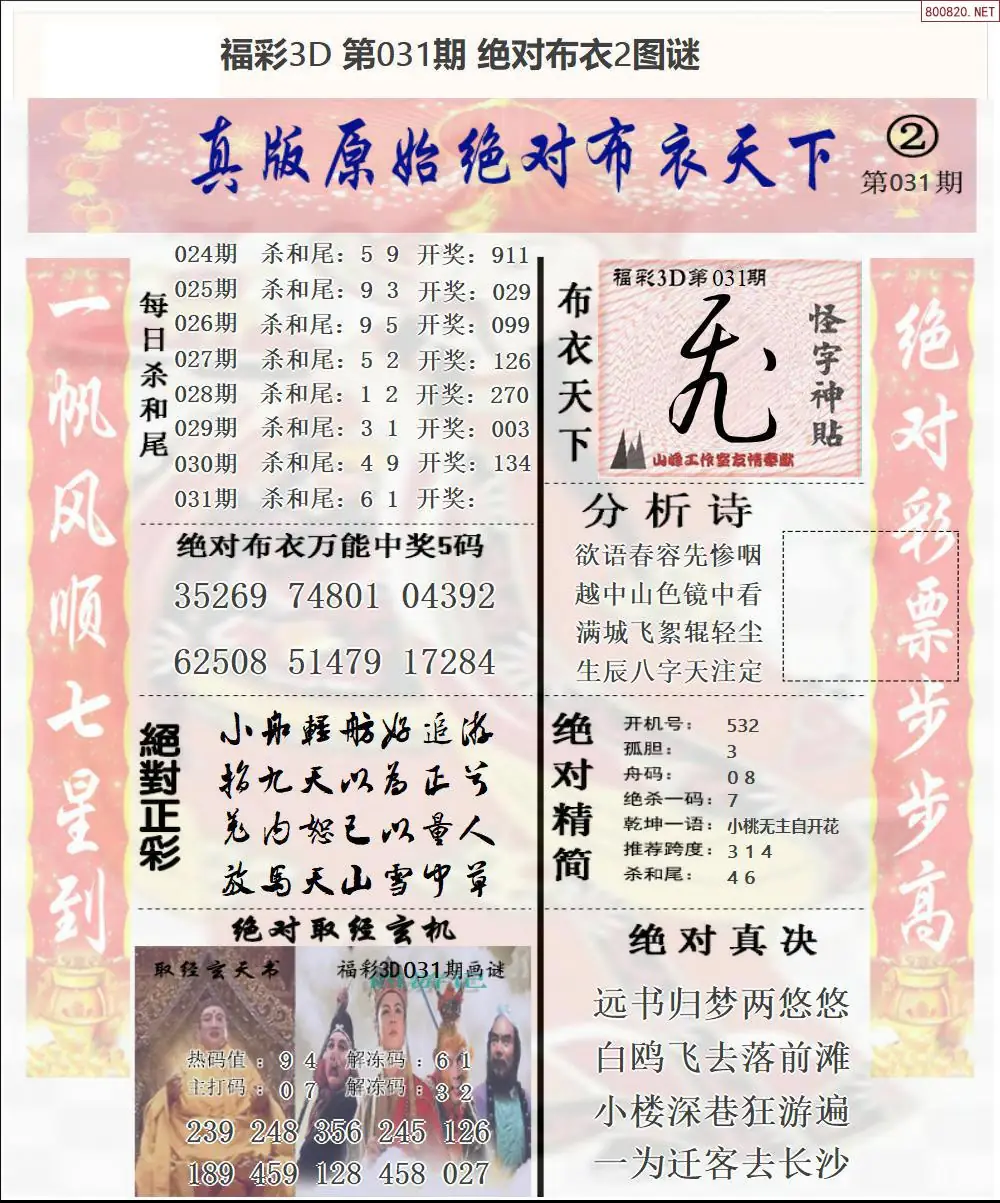 800820.NET
福彩3D 第031期 绝对布衣2图谜
真版原始绝对布衣天下
②
第031期
一帆风顺七星到
每日杀和尾
024期 杀和尾：5 9 开奖：911
025期 杀和尾：9 3 开奖：029
026期 杀和尾：9 5 开奖：099
027期 杀和尾：5 2 开奖：126
028期 杀和尾：1 2 开奖：270
029期 杀和尾：3 1 开奖：003
030期 杀和尾：4 9 开奖：134
031期 杀和尾：6 1 开奖：
绝对布衣万能中奖5码
35269 74801 04392
62508 51479 17284
絕對正彩
小舟輕舫好追游
指九天以為正兮
羌内恕己以量人
放馬天山雪中草
绝对取经玄机
取经玄天书
福彩3D031期画谜
热码值：9 4 解冻码：6 1
主打码：0 7 解冻码：3 2
239 248 356 245 126
189 459 128 458 027
布衣天下
福彩3D第031期
怪字神貼
山峰工作室友情奉献
分析诗
欲语春容先惨咽
越中山色镜中看
满城飞絮辊轻尘
生辰八字天注定
绝对精简
开机号：532
孤胆：3
舟码：0 8
绝杀一码：7
乾坤一语：小桃无主自开花
推荐跨度：3 1 4
杀和尾：4 6
绝对真决
远书归梦两悠悠
白鸥飞去落前滩
小楼深巷狂游遍
一为迁客去长沙
绝对彩票步步高